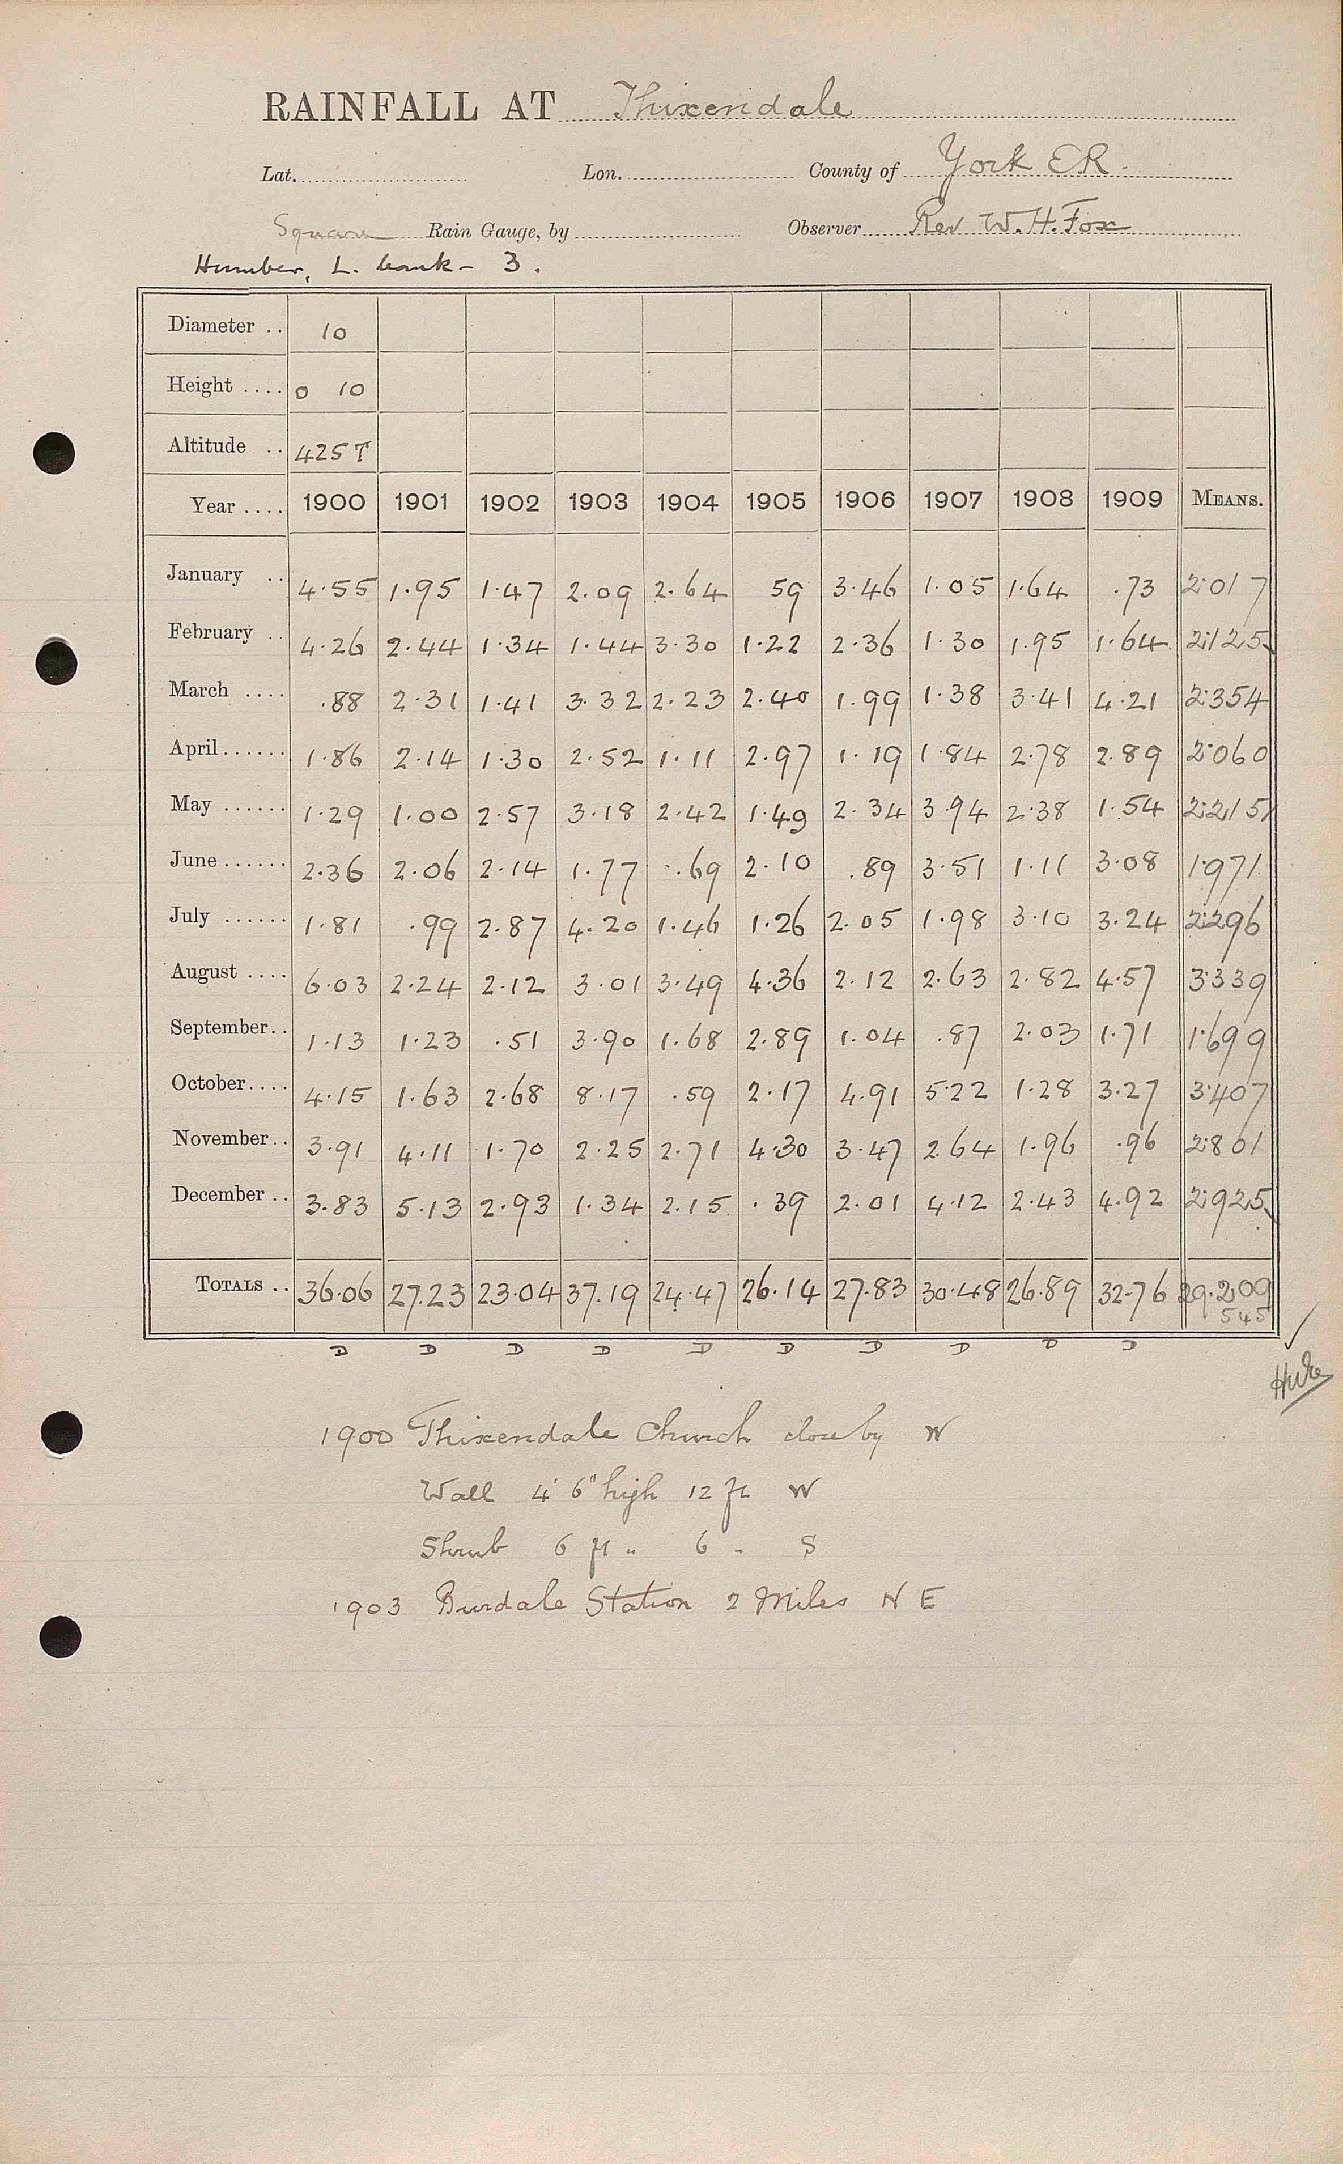 RAINFALL AT Thixendale
Lat. Lon. County of York E.R.
Square Rain Gauge, by Observer Rev W. H. Fox
Humber, L. bank - 3.
Diameter .. 10
Height .... 0 10
Altitude .. 425 T
Year .... 1900 1901 1902 1903 1904 1905 1906 1907 1908 1909 MEANS.
January .. 4.55 1.95 1.47 2.09 2.64 59 3.46 1.05 1.64 .73 2.017
February .. 4.26 2.44 1.34 1.44 3.30 1.22 2.36 1.30 1.95 1.64 2.125
March .... .88 2.31 1.41 3.32 2.23 2.40 1.99 1.38 3.41 4.21 2.354
April...... 1.86 2.14 1.30 2.52 1.11 2.97 1.19 1.84 2.78 2.89 2.060
May ...... 1.29 1.00 2.57 3.18 2.42 1.49 2.34 3.94 2.38 1.54 2.215
June ...... 2.36 2.06 2.14 1.77 .69 2.10 .89 3.51 1.11 3.08 1.971
July ...... 1.81 .99 2.87 4.20 1.46 1.26 2.05 1.98 3.10 3.24 2.296
August .... 6.03 2.24 2.12 3.01 3.49 4.36 2.12 2.63 2.82 4.57 3.339
September.. 1.13 1.23 .51 3.90 1.68 2.89 1.04 .87 2.03 1.71 1.699
October.... 4.15 1.63 2.68 8.17 .59 2.17 4.91 5.22 1.28 3.27 3.407
November.. 3.91 4.11 1.70 2.25 2.71 4.30 3.47 2.64 1.96 .96 2.801
December .. 3.83 5.13 2.93 1.34 2.15 .39 2.01 4.12 2.43 4.92 2.925
TOTALS .. 36.06 27.23 23.04 37.19 24.47 26.14 27.83 30.48 26.89 32.76 29.209
545
D D D D D D D D D D
1900 Thixendale Church close by W
Wall 4' 6" high 12 ft W
Shrub 6 ft " 6 " S
1903 Burdale Station 2 Miles N E